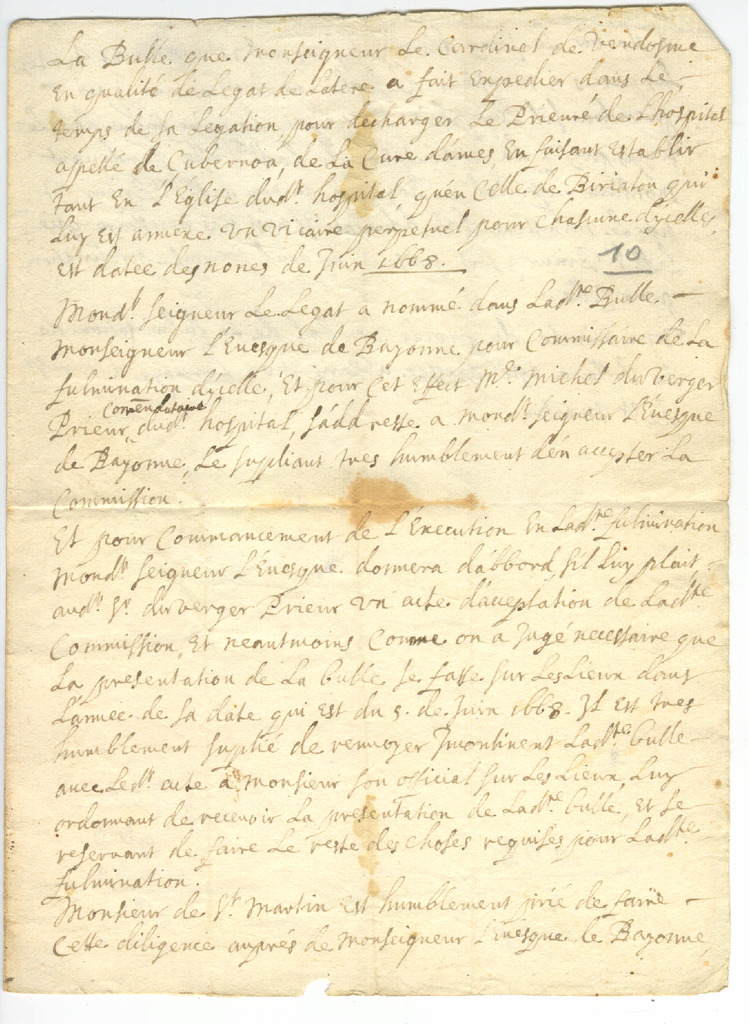 La Bulle que Monseigneur Le Cardinel de Vendosme
En qualité de Legat de Latere a fait Expedier dans Le
temps de sa Legation, pour decharger Le Prieuré de L'hospital
appellé de Cubernoa, de La Cure dames, En faisant Establir
tant En L'Eglise dud.t hospital, qu'en Celle de Biriaton qui
Luy Est annexe Un Vicaire perpetuel pour chascune d'ycelles,
Est datee des nones de Juin 1668.
10
Mond.t seigneur Le Legat a nommé dans Lad.te Bulle –
Monseigneur L'Evesque de Bayonne pour Commissaire de La
fulmination d'ycelle, Et pour Cet Effect M.re Michel duverger
Comendataire
Prieur dud.t hospital, s'addresse a mond.t seigneur L'Evesque
de Bayonne, Le supliant tres humblement d'en accepter La
Commission.
Et pour Commancement de L'Execution En Lad.te fulmination
Mond.t seigneur L'Evesque donnera d'abbord s'il Luy plait
aud.t S.r duverger Prieur Un acte d'acceptation de Lad.te
Commission, Et neantmoins Comme on a Jugé necessaire que
La presentation de La bulle se fasse sur Les Lieux dans
L'annee de sa date qui Est du 5. de Juin 1668. Il Est tres
humblement suplié de renvoyer Incontinent Lad.te bulle
avec Led.t acte a Monsieur son official sur Les Lieux Luy
ordonnant de recevoir La presentation de Lad.te bulle, Et se
reservant de faire Le reste des choses requises pour Lad.te
fulmination.
Monsieur de S.t Martin Est humblement prié de faire –
Cette diligence auprés de Monseigneur L'Evesque de Bayonne